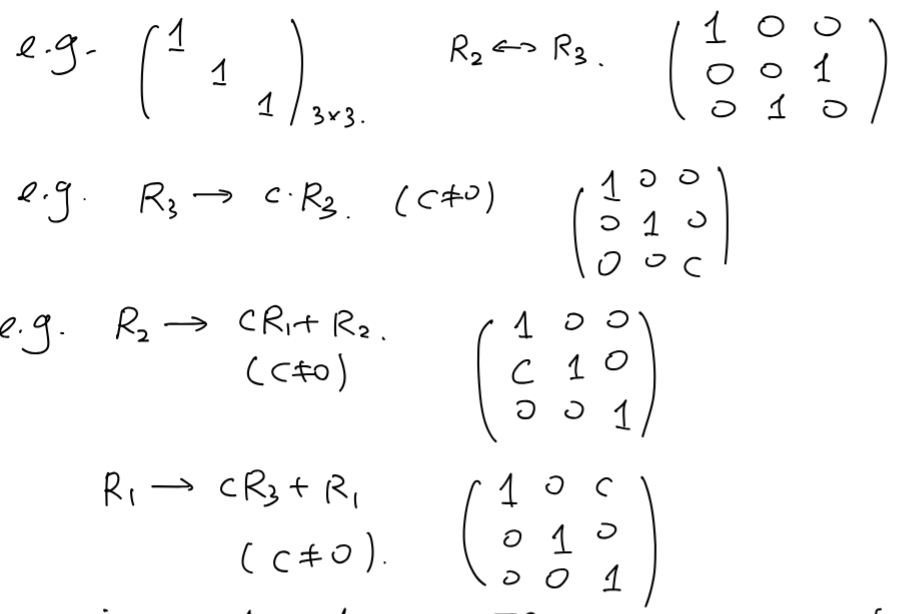 e.g. ( 1 1 1 ) 3×3. R₂ ↔ R₃. ( 1 0 0
0 0 1
0 1 0 )
e.g. R₃ → c·R₃. (c≠0) ( 1 0 0
0 1 0
0 0 c )
e.g. R₂ → cR₁ + R₂. ( 1 0 0
(c≠0) c 1 0
0 0 1 )
R₁ → cR₃ + R₁ ( 1 0 c
(c≠0). 0 1 0
0 0 1 )